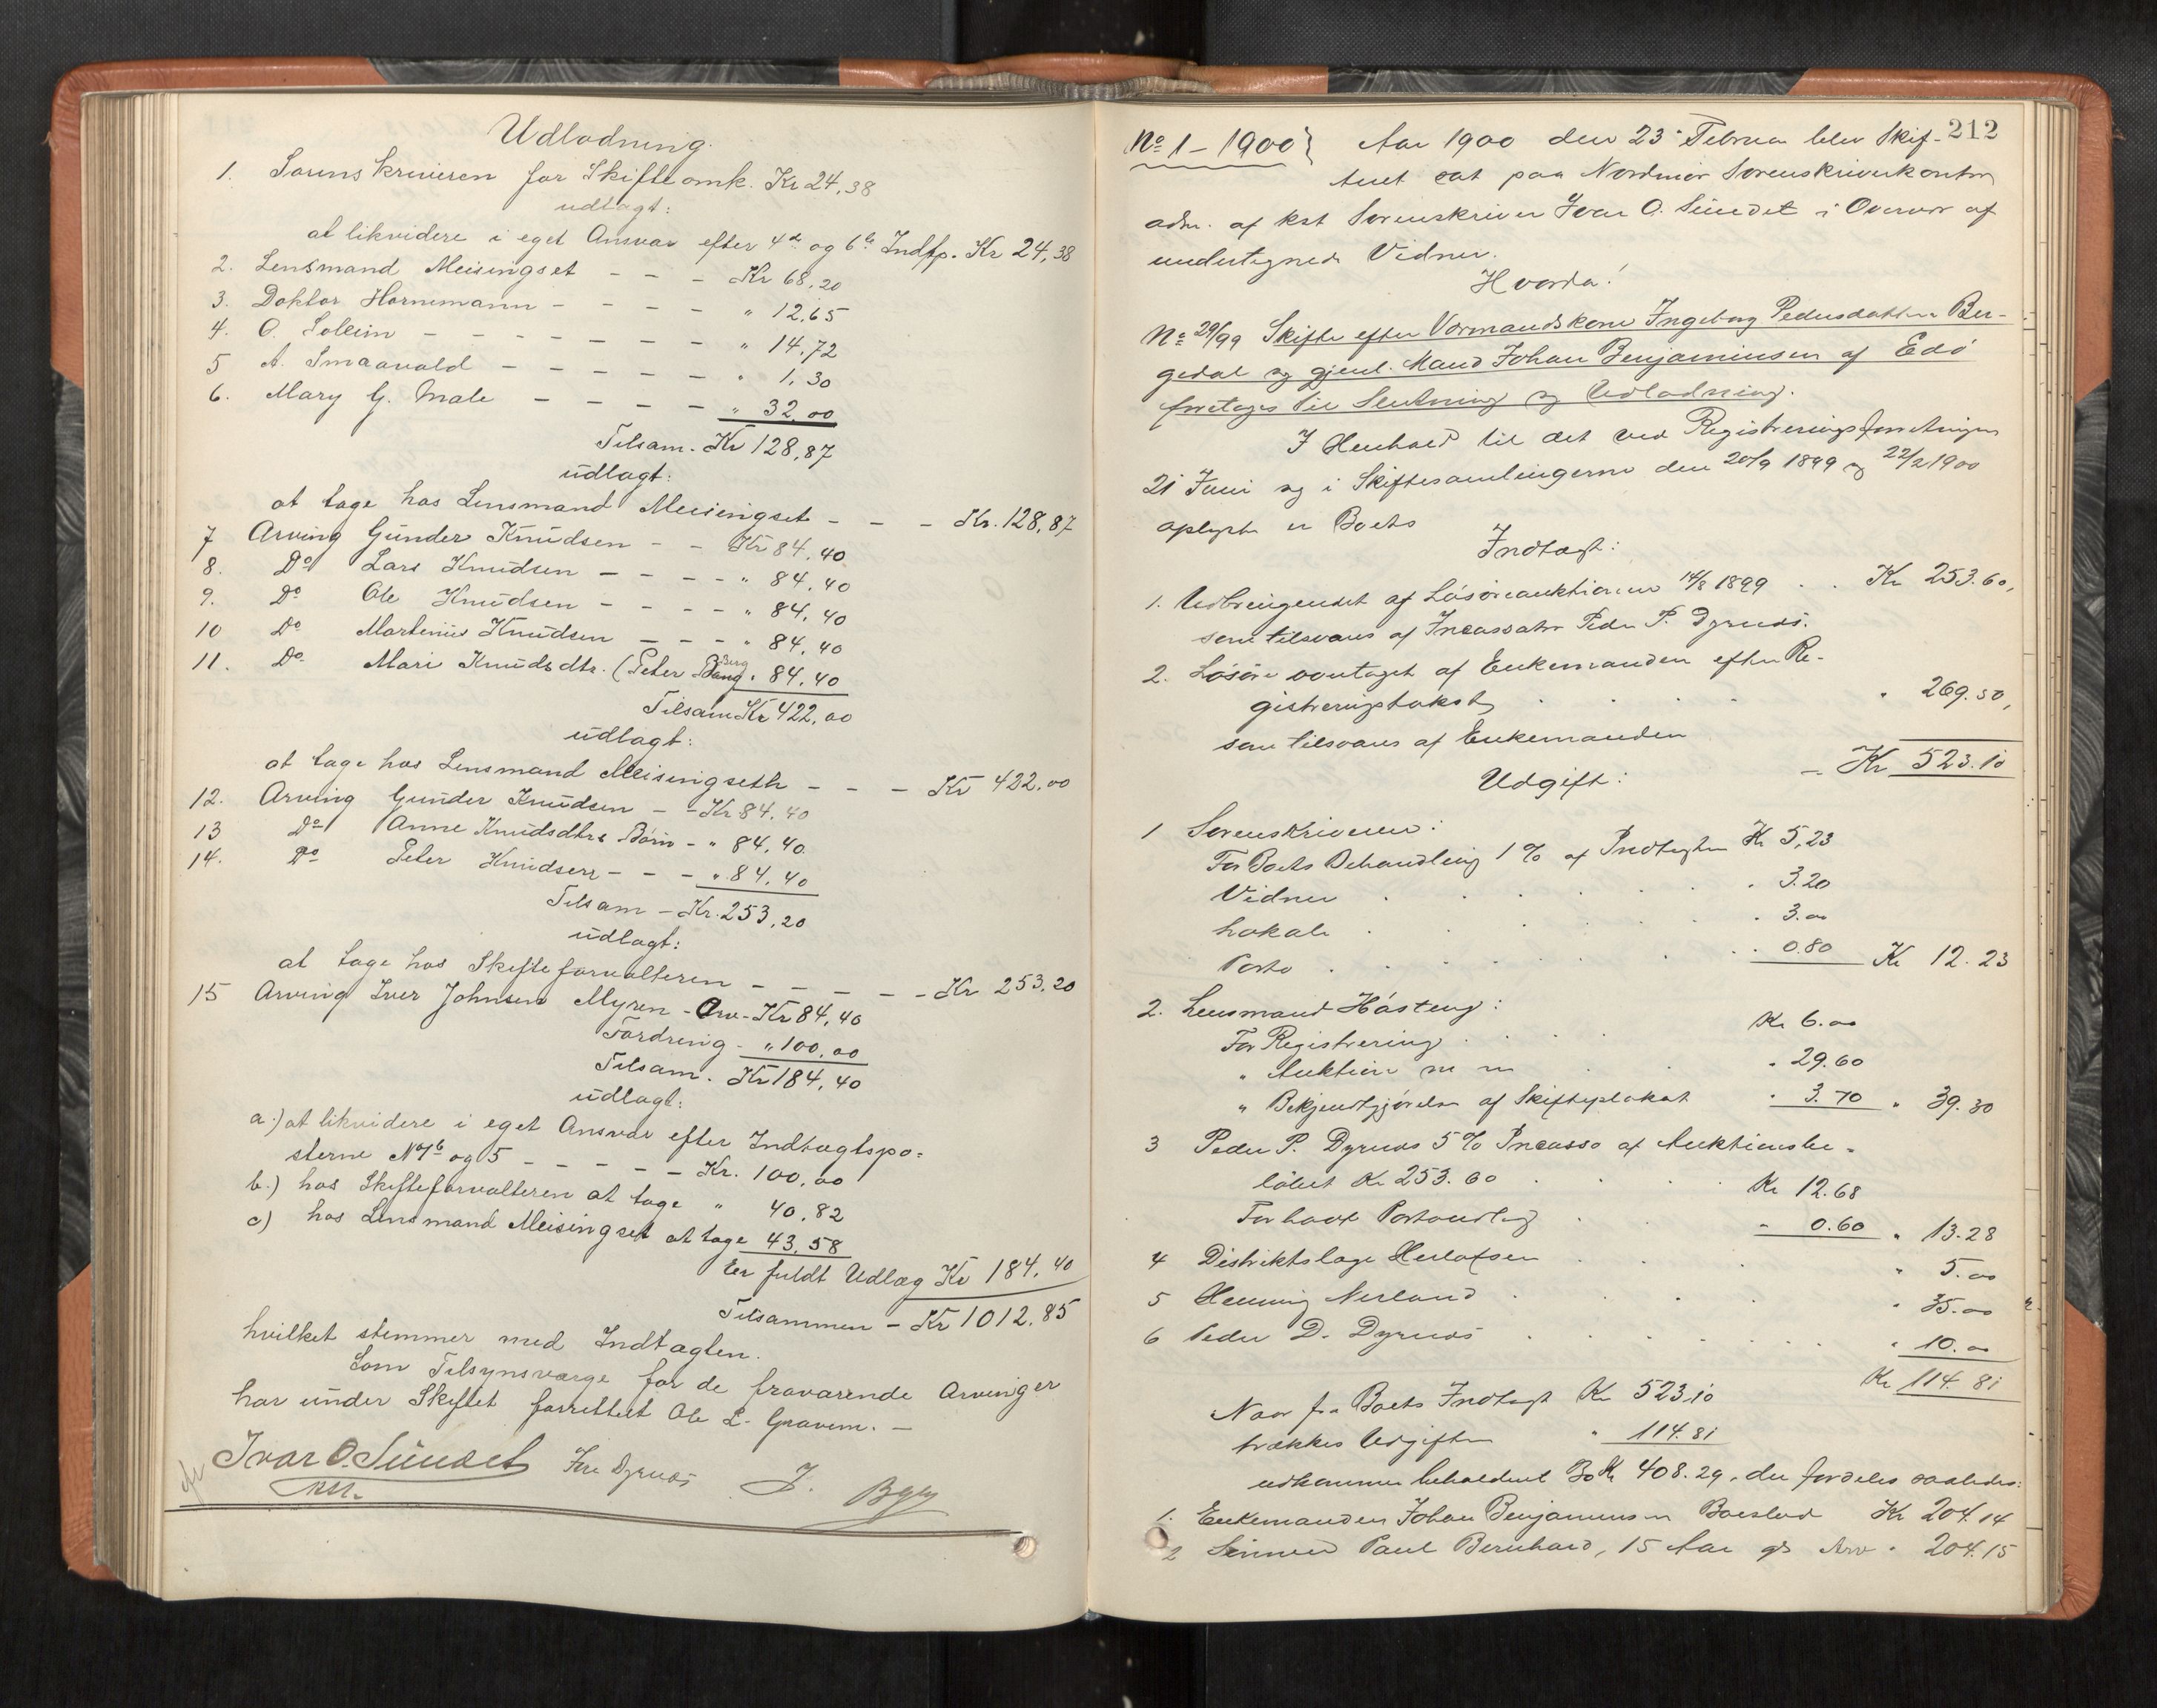 Udlodning.
1. Sorenskriveren for Skifteomk. Kr 24,38
udlagt:
at likvidere i eget Ansvar efter 4de og 6te Indtp. Kr 24,38
2. Lensmand Meisingset - - - Kr 68,20
3. Doktor Hornemann - - - - " 12,65
4. O. Solleim - - - - - - - " 14,72
5 A. Smaavold - - - - - - " 1,30
6. Mary G. Male - - - - - " 32,00
Tilsam. Kr 128,87
udlagt:
at tage hos Lensmand Meisingset - - - Kr. 128,87
7 Arving Gunder Knudsen - - Kr 84,40
8. Do Lars Knudsen - - - - " 84,40
9. Do Ole Knudsen - - - - " 84,40
10 Do Martinus Knudsen - - - " 84,40
11. Do Mari Knudsdtr. (Peter Berg " 84,40
Tilsam Kr 422,00
udlagt:
at tage hos Lensmand Meisingseth - - - Kr 422,00
12. Arving Gunder Knudsen - - Kr 84,40
13 Do Anne Knudsdtrs Børn - " 84,40
14. Do Peter Knudsen - - - " 84,40
Tilsam - Kr. 253,20
udlagt:
at tage hos Skifteforvalteren - - - - - Kr 253,20
15 Arving Iver Johnsen Myren - Arv - Kr 84,40
Fordring - " 100,00
Tilsam. Kr 184,40
udlagt:
a.) at likvidere i eget Ansvar efter Indtægtspo=
sterne No 1b og 5 - - - - - Kr. 100,00
b.) hos Skifteforvalteren at tage " 40,82
c) hos Lensmand Meisingset at tage 43,58
Er fuldt Udlæg Kr 184,40
Tilsammen - Kr 1012.85
hvilket stemmer med Indtægten.
Som Tilsynsværge for de fraværende Arvinger
har under Skiftet forrettet Ole L. Gravem. -
Ivar O. Sundet
kst.
212
No 1 - 1900 } Aar 1900 den 23 Februar blev Skif-
teret sat paa Nordmør Sorenskriverkontor
adm. af kst Sorenskriver Ivar O. Sundet i Overvær af
undertegnede Vidner.
Hvorda!
No 29/99 Skifte efter Vormandskone Ingeborg Pedersdatter Ber-
gedal og gjenl. Mand Johan Benjaminsen af Edø
foretages til Slutning og Udlodning.
I Henhold til det ved Registreringsforretningen
21 Juni og i Skiftesamlingerne den 20/9 1899 og 22/2 1900
oplyste er Boets
Indtægt:
1. Udbringendet af Løsøreauktionen 14/8 1899 . . Kr 253.60,
som tilsvares af Incassator Peder P. Dyrnes.
2. Løsøre overtaget af Enkemanden efter Re-
gistreringstakst . . . . " 269.50,
som tilsvares af Enkemanden
- Kr 523.10
Udgift:
1 Sorenskriveren:
For Boets Behandling 1% af Indtægten Kr 5,23
Vidner . . . . " 3.20
Lokale . . . . " 3.00
Porto . . . . " 0.80 Kr 12.23
2. Lensmand Høsteng:
For Registrering . . . Kr 6.00
" Auktion m m . " 29.60
" Bekjendtgjørelse af Skifteplakat " 3.70 " 39.30
3 Peder P. Dyrnes 5% Incasso af Auktionsbe-
løbet Kr 253.60 . . . Kr 12.68
For havt Portoudlæg . " 0.60 " 13.28
4 Distriktslæge Herlofsen . . . " 5.00
5 Henning Nerland . . . . " 35.00
6 Peder D. Dyrnes . . . . " 10.00
Kr 114.81
Naar fra Boets Indtægt Kr 523,10
trækkes Udgiften " 114.81
udkommer beholdent Bo Kr 408.29, der fordeles saaledes:
1. Enkemanden Johan Benjaminsen Boeslod Kr 204.14
2 Sønnen Paul Bernhard, 15 Aar gl. Arv " 204.15